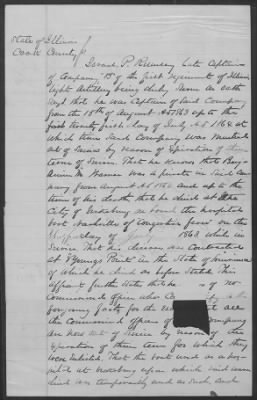 State of Illinois
Cook County
P. Rumsey late Captain
of Company "B" of the first Regiment of Illinois
Light Artillery being duly sworn on oath
says that he was Captain of said Company
from the 18th of August AD 1863 up to the
first day of July AD 1864 at
which time said Company was mustered
out of service by reason of Expiration of
term of service. That he knows that Benj
was a private in said Com
pany from August AD 1861 and up to the
time of his death, that he died at the
City of Vicksburg on board the hospital
boat Nashville of Congestive fever on the
day of 1863 while in
service That his disease was contracted
at Youngs Point in the State of Louisiana
of which he died as before stated. This
affiant further states that he of no
Commissioned officer who
foregoing facts for the all
the Commissioned officers of Company
are now out of service by reason of the
expiration of their term for which they
were enlisted. That the boat used as a hos
pital at Vicksburg after which said
died was temporarily used as such, and